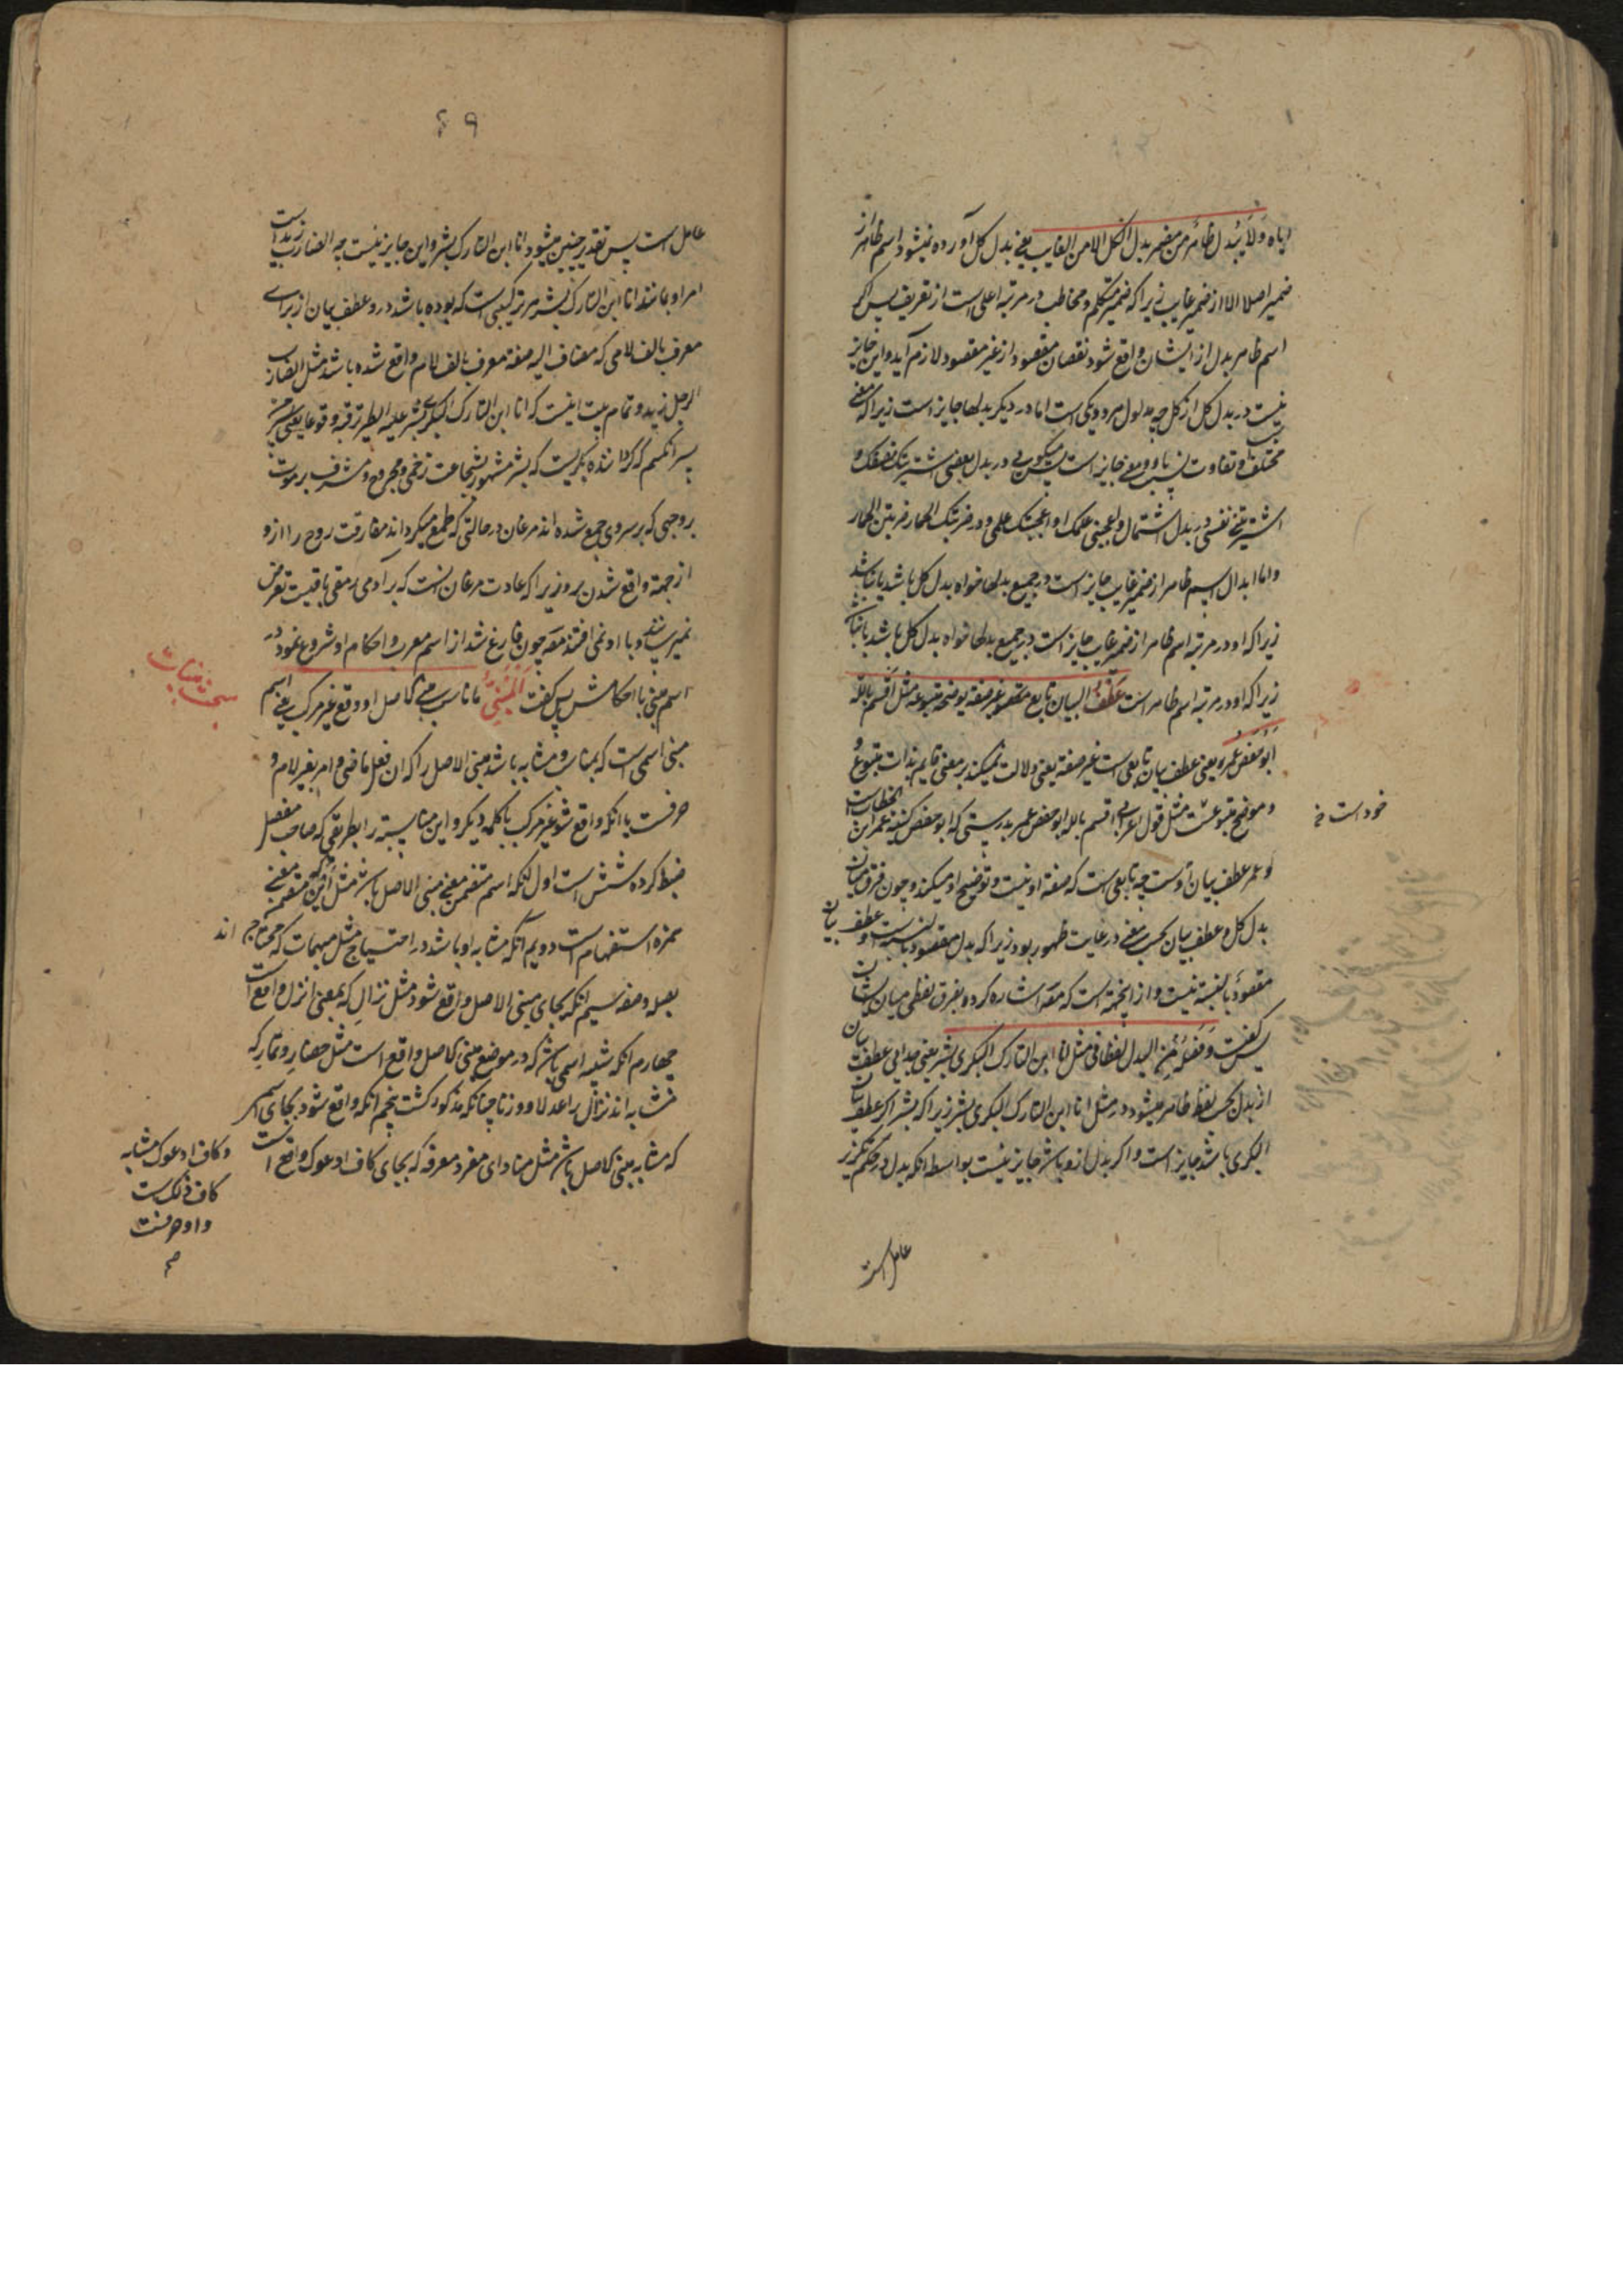 ایاه ولا یبدل ظاهر من مضمر بدل الکل الا من الغایب یعنی بدل کل آورده نمیشود اسم ظاهر از
ضمیر اصلا الا از ضمیر غایب زیرا که ضمیر متکلم و مخاطب در مرتبه اعلی است از تعریف پس اکر
اسم ظاهر بدل از ایشان واقع شود نقصان مقصود از غیر مقصود لازم آید و این جایز
نیست در بدل کل از کل چه مدلول هر دو یکی است اما در دیکر بدلها جایز است زیرا که معنی
مختلف و تفاوت بحسب معنی جایز است پس میکویی در بدل بعض اشتریتک نصفک و
اشتریتنی نفسی در بدل اشتمال واعجبنی علمک او اعجبتک علمی و در ضربتک الحمار ضربتنی الحمار
و اما ابدال اسم ظاهر از ضمیر غایب جایز است در جمیع بدلها خواه بدل کل باشد یا نباشد
زیرا که او در مرتبه اسم ظاهر از ضمیر غایب جایز است در جمیع بدلها خواه بدل کل باشد یا نباشد
زیرا که او در مرتبه اسم ظاهر است عطف البیان تابع مقصود غیر صفة یوضح متبوعه مثل اقسم بالله
ابو حفص عمر یعنی عطف بیان تابعی است غیر صفة یعنی دلالت نمیکند بر معنی قایم بذات متبوع و
و موضح متبوعست مثل قول اعرابی اقسم بالله ابو حفص عمر بدرستی که ابو حفص کنیة عمر ابن الخطاب است
خود است
و عمر عطف بیان اوست چه تابعی است که صفة او نیست و توضیح او میکند و چون فرق میان
بدل کل و عطف بیان بحسب معنی در غایت ظهور بود زیرا که بدل مقصود بالنسبت است و عطف بیان
مقصود بالنسبة نیست و از اینجهة است که مصه اشاره کرده بفرق لفظی میان ایشان
پس کفت وفصله من البدل لفظا فی مثل انا ابن التارک البکری بشر یعنی جدایی عطف بیان
از بدل بحسب لفظ ظاهر میشود در مثل انا ابن التارک البکری بشر زیرا که بشر اکر عطف بیان
البکری باشد جایز است و اکر بدل از و باشد جایز نیست بواسطه انکه بدل در حکم تکریر
عامل است
۶۹
عامل است پس تقدیر چنین میشود انا ابن التارک بشر و این جایز نیست چه الضارب زید است
امر او بمانند انا ابن التارک بشر هر ترکیبی است که بوده باشد درو عطف بیان از برای
معرف بالف لامی که مضاف الیه صفة معرف بالف لام واقع شده باشد مثل الضارب
الرجل زید و تمام بیت اینست که انا ابن التارک البکری بشر علیه الطیر ترقبه وقوعا یعنی من
پسر انکسم که کرداننده بکریست که بشر مشهور بشجاعت زخمی و مجروح و مشرف بر موت
بروجهی که بر سر وی جمع شده اند مرغان در حالتی که طمع میکرده اند مفارقت روح را ازو
از جهة واقع شدن برو زیرا که عادت مرغان انست که بر آدمی رمقی باقیست تعرض
نمیرسانند و با او نمی افتند مصه چون فارغ شد از اسم معرب و احکام او شروع نمود در
اسم مبنی با احکامش پس کفت المبنی ما ناسب مبنی الاصل او وقع غیر مرکب یعنی اسم
بحث مبنیات
مبنی اسمی است که بمناسب و مشابه باشد مبنی الاصل را که ان فعل ماضی و امر بغیر لام و
حرفست یا انکه واقع شود غیر مرکب با کلمه دیکر و این مناسبة را بطریقی که صاحب مفصل
ضبط کرده شش است اول انکه اسم متضمن معنی مبنی الاصل باشد مثل این که متضمن معنی
همزه استفهام است دویم آنکه مشابه او باشد در احتیاج مثل مبهمات که محتاج اند
بصله و صفه سیم انکه بجای مبنی الاصل واقع شود مثل نزال که بمعنی انزل واقع است
چهارم انکه شبیه اسمی باشد که در موضع مبنی الاصل واقع است مثل حضار و تمار که
مشابه اند نزال را عدلا و وزنا چنانکه مذکور کشت پنجم انکه واقع شود بجای اسمی
که مشابه مبنی الاصل باشد مثل منادای مفرد معرفه که بجای کاف ادعوک واقع است
و کاف ادعوک مشابه
کاف ذلک است
و او حرفست